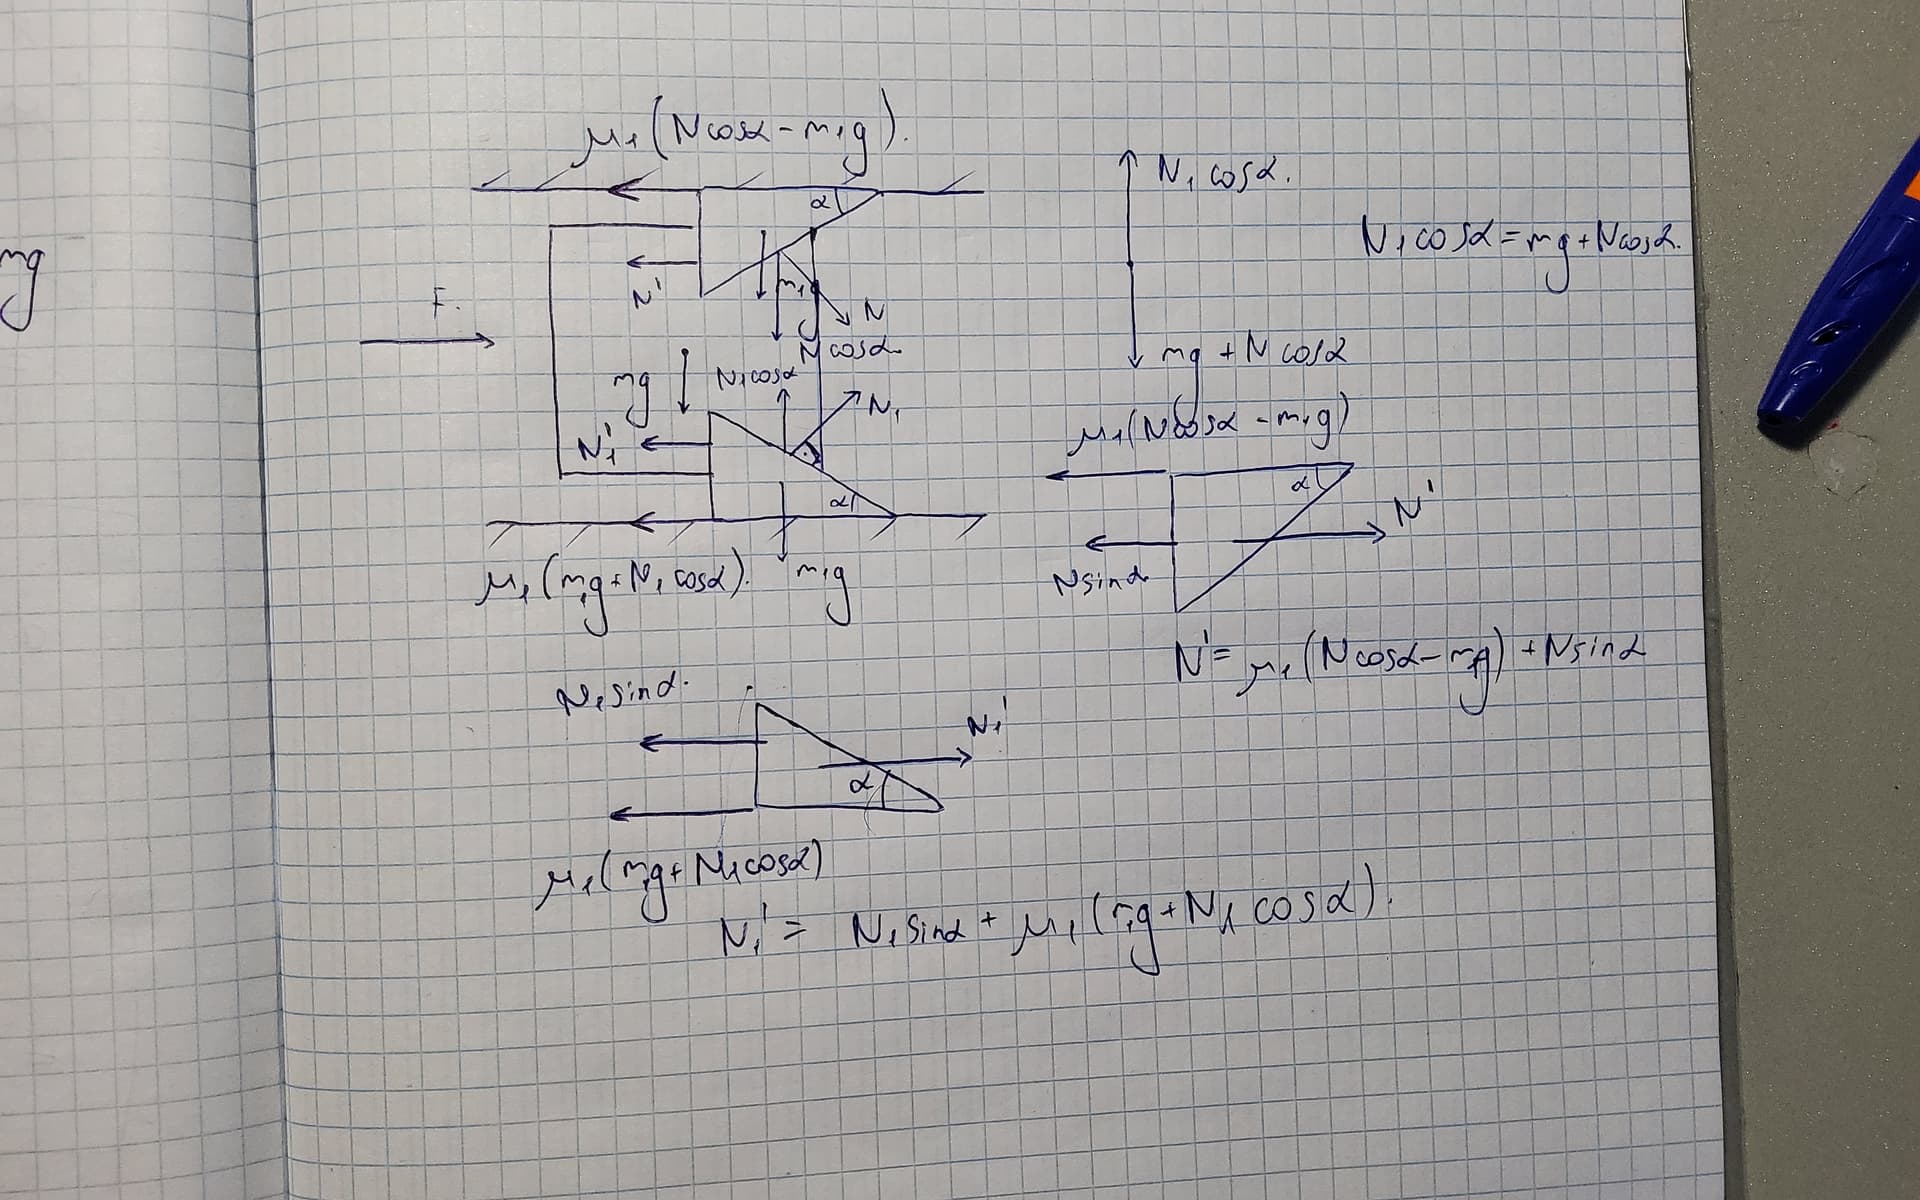 μ₁(Ncosα - m₁g).
α
N'
m₁g
N
Ncosα
F.
mg
N₁cosα
N₁
N₁'
α
μ₁(m₁g+N₁cosα).
m₁g
N₁cosα.
mg + Ncosα
N₁cosα = mg + Ncosα.
μ₁(Ncosα - m₁g)
α
N'
Nsinα
N' = μ₁(Ncosα - m₁g) + Nsinα
N₁sinα.
N₁'
α
μ₁(m₁g + N₁cosα)
N₁' = N₁sinα + μ₁(m₁g + N₁cosα).
mg